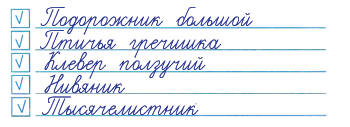 Подорожник большой
Птичья гречишка
Клевер ползучий
Нивяник
Тысячелистник